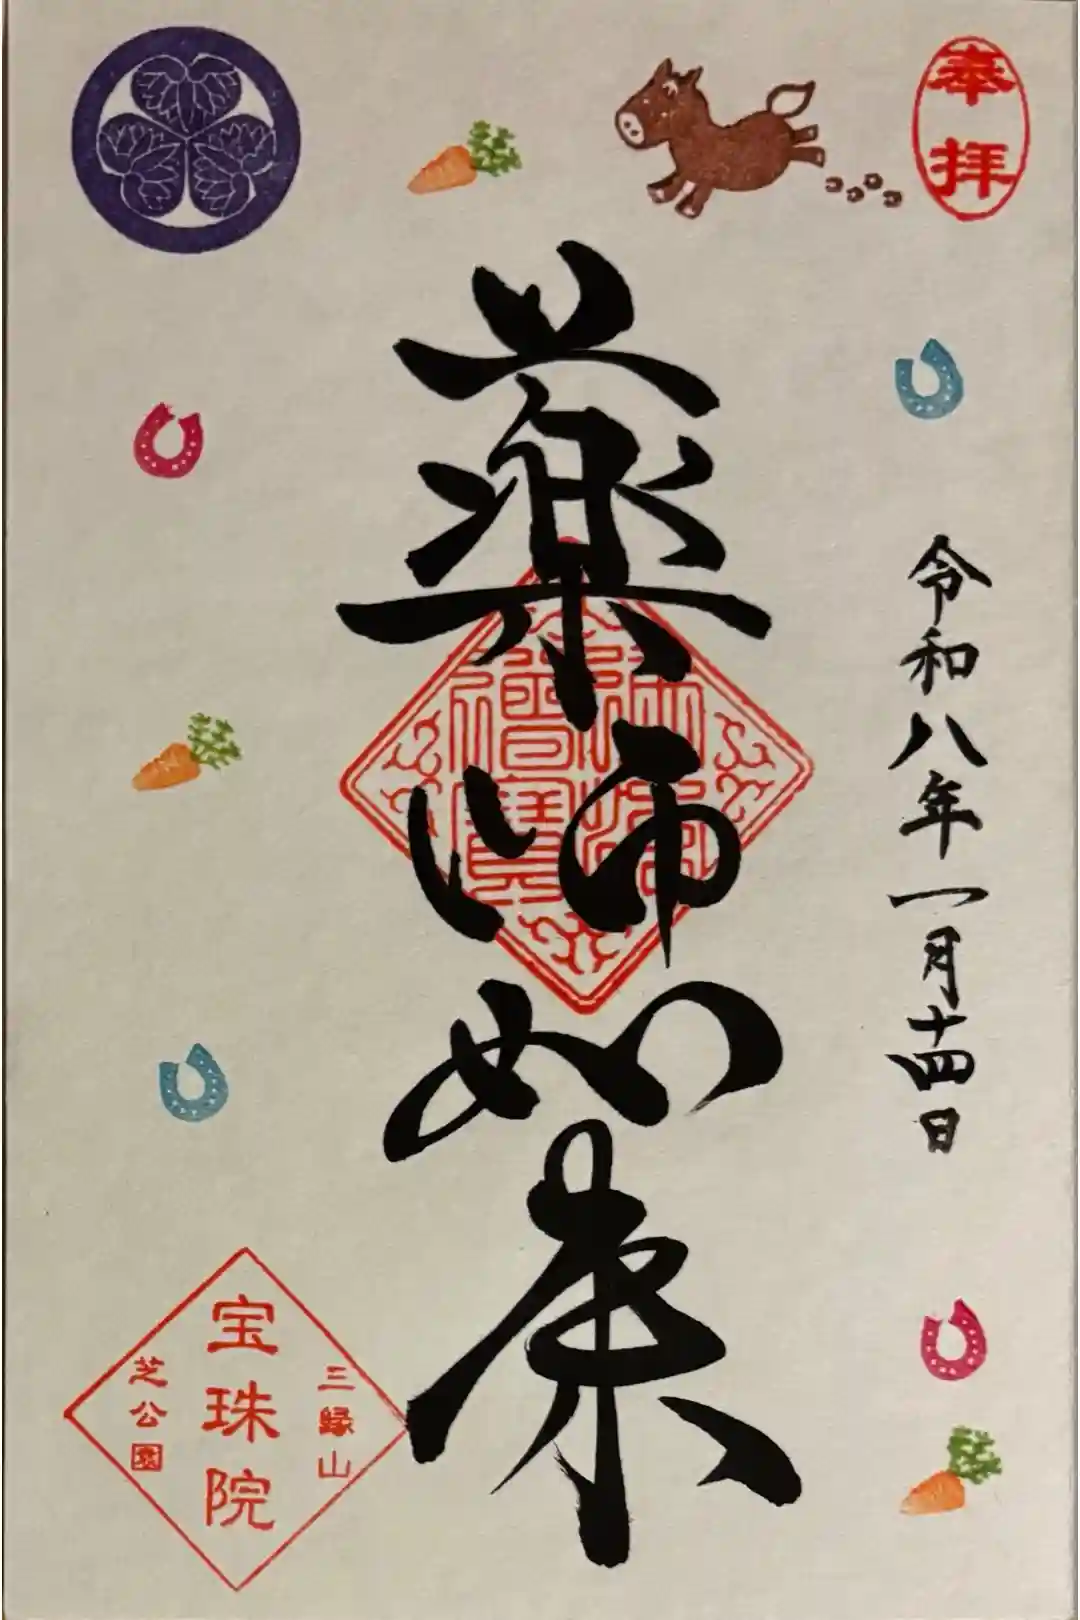 奉拝
令和八年一月十四日
薬師如来
三縁山
宝珠院
芝公園